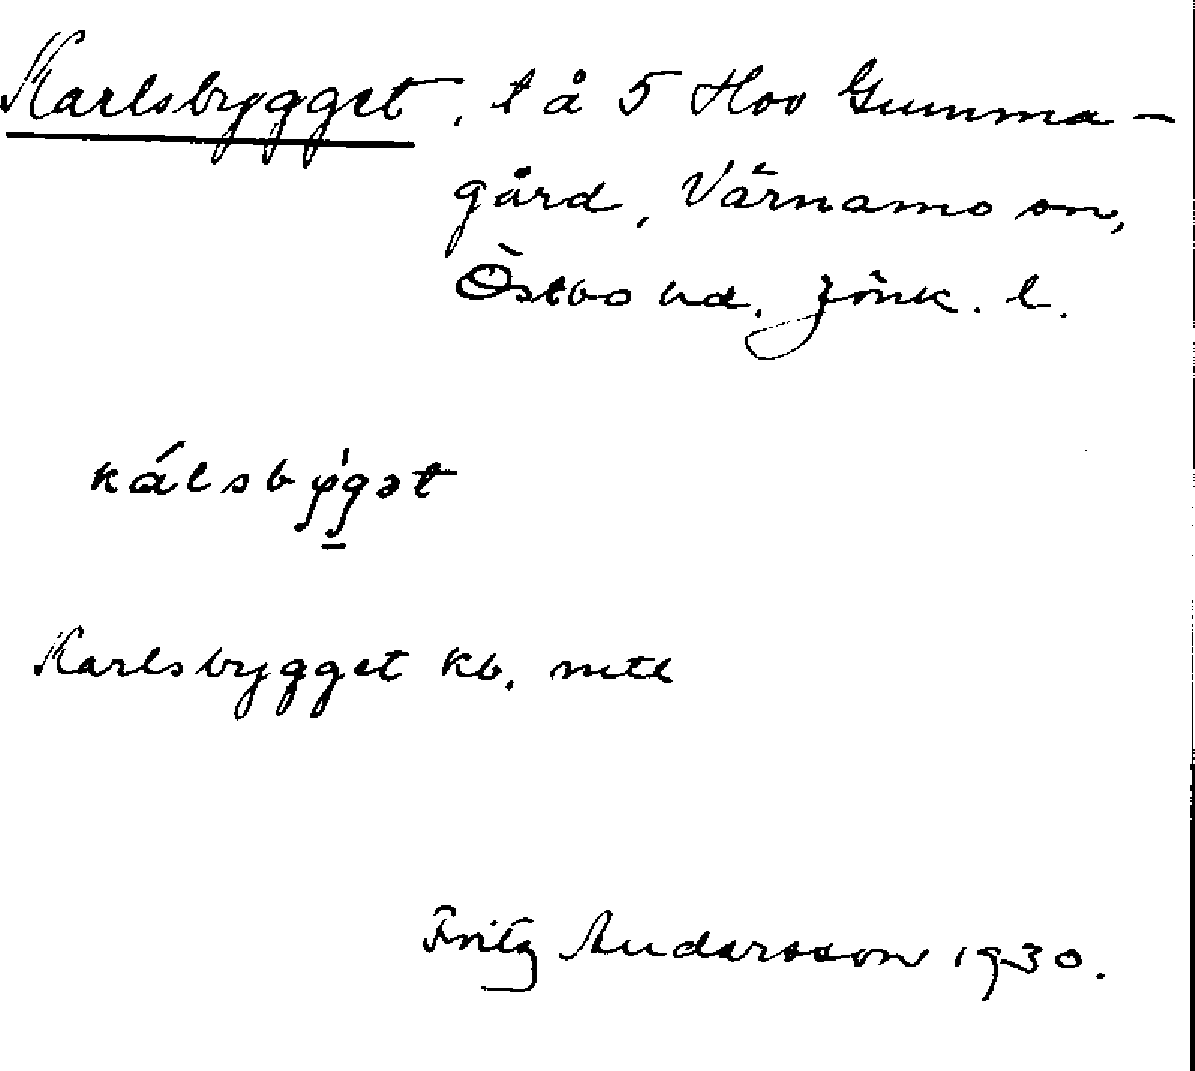 Karlsbygget, l å 5 Hov Gumma-
gård, Värnamo sn,
Östbo hd. Jönk. l.
kálsbýgət
Karlsbygget kb. mtl
Fritz Andersson 1930.